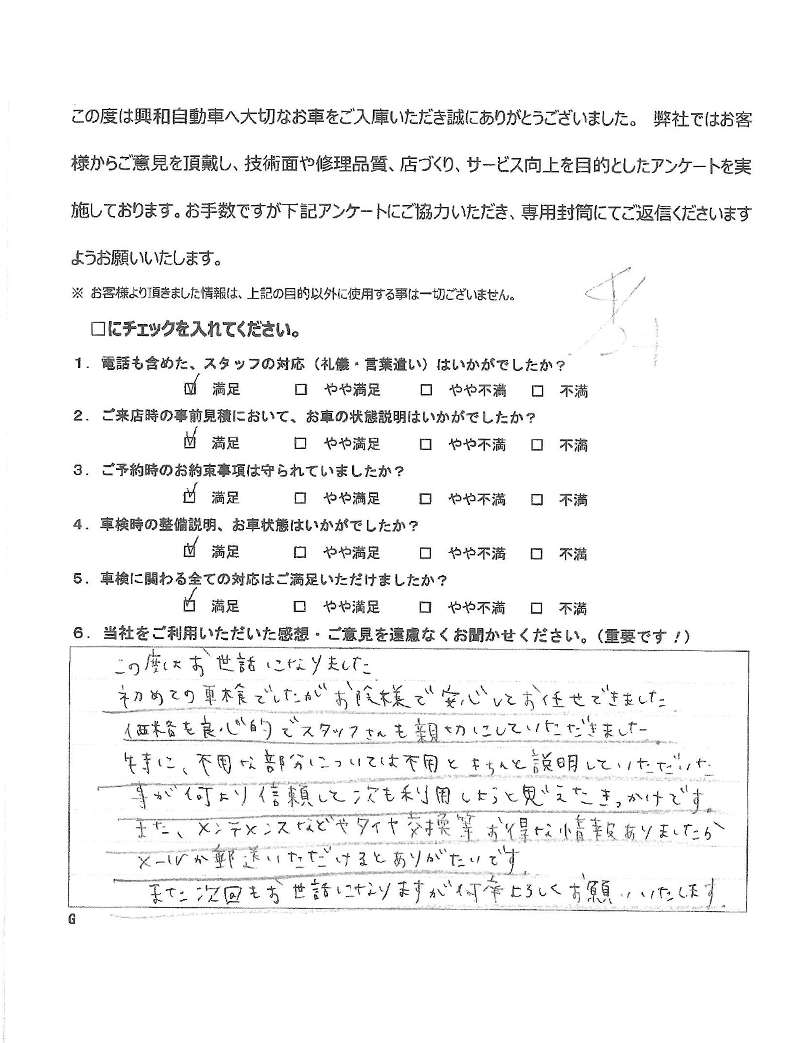 この度は興和自動車へ大切なお車をご入庫いただき誠にありがとうございました。 弊社ではお客
様からご意見を頂戴し、技術面や修理品質、店づくり、サービス向上を目的としたアンケートを実
施しております。お手数ですが下記アンケートにご協力いただき、専用封筒にてご返信くださいます
ようお願いいたします。
※ お客様より頂きました情報は、上記の目的以外に使用する事は一切ございません。
□にチェックを入れてください。
1．電話も含めた、スタッフの対応（礼儀・言葉遣い）はいかがでしたか？
☑ 満足 □ やや満足 □ やや不満 □ 不満
2．ご来店時の事前見積において、お車の状態説明はいかがでしたか？
☑ 満足 □ やや満足 □ やや不満 □ 不満
3．ご予約時のお約束事項は守られていましたか？
☑ 満足 □ やや満足 □ やや不満 □ 不満
4．車検時の整備説明、お車状態はいかがでしたか？
☑ 満足 □ やや満足 □ やや不満 □ 不満
5．車検に関わる全ての対応はご満足いただけましたか？
☑ 満足 □ やや満足 □ やや不満 □ 不満
6．当社をご利用いただいた感想・ご意見を遠慮なくお聞かせください。（重要です！）
この度はお世話になりました
初めての車検でしたがお陰様で安心してお任せできました
価格も良心的でスタッフさんも親切にしていただきました
特に、不用な部分については不用ときちんと説明していただいた
事が何より信頼して次も利用しようと思えたきっかけです。
また、メンテメンスなどやタイヤ交換等お得な情報ありましたら
メールか郵送いただけるとありがたいです。
また次回もお世話になりますが何卒よろしくお願いいたします。
G